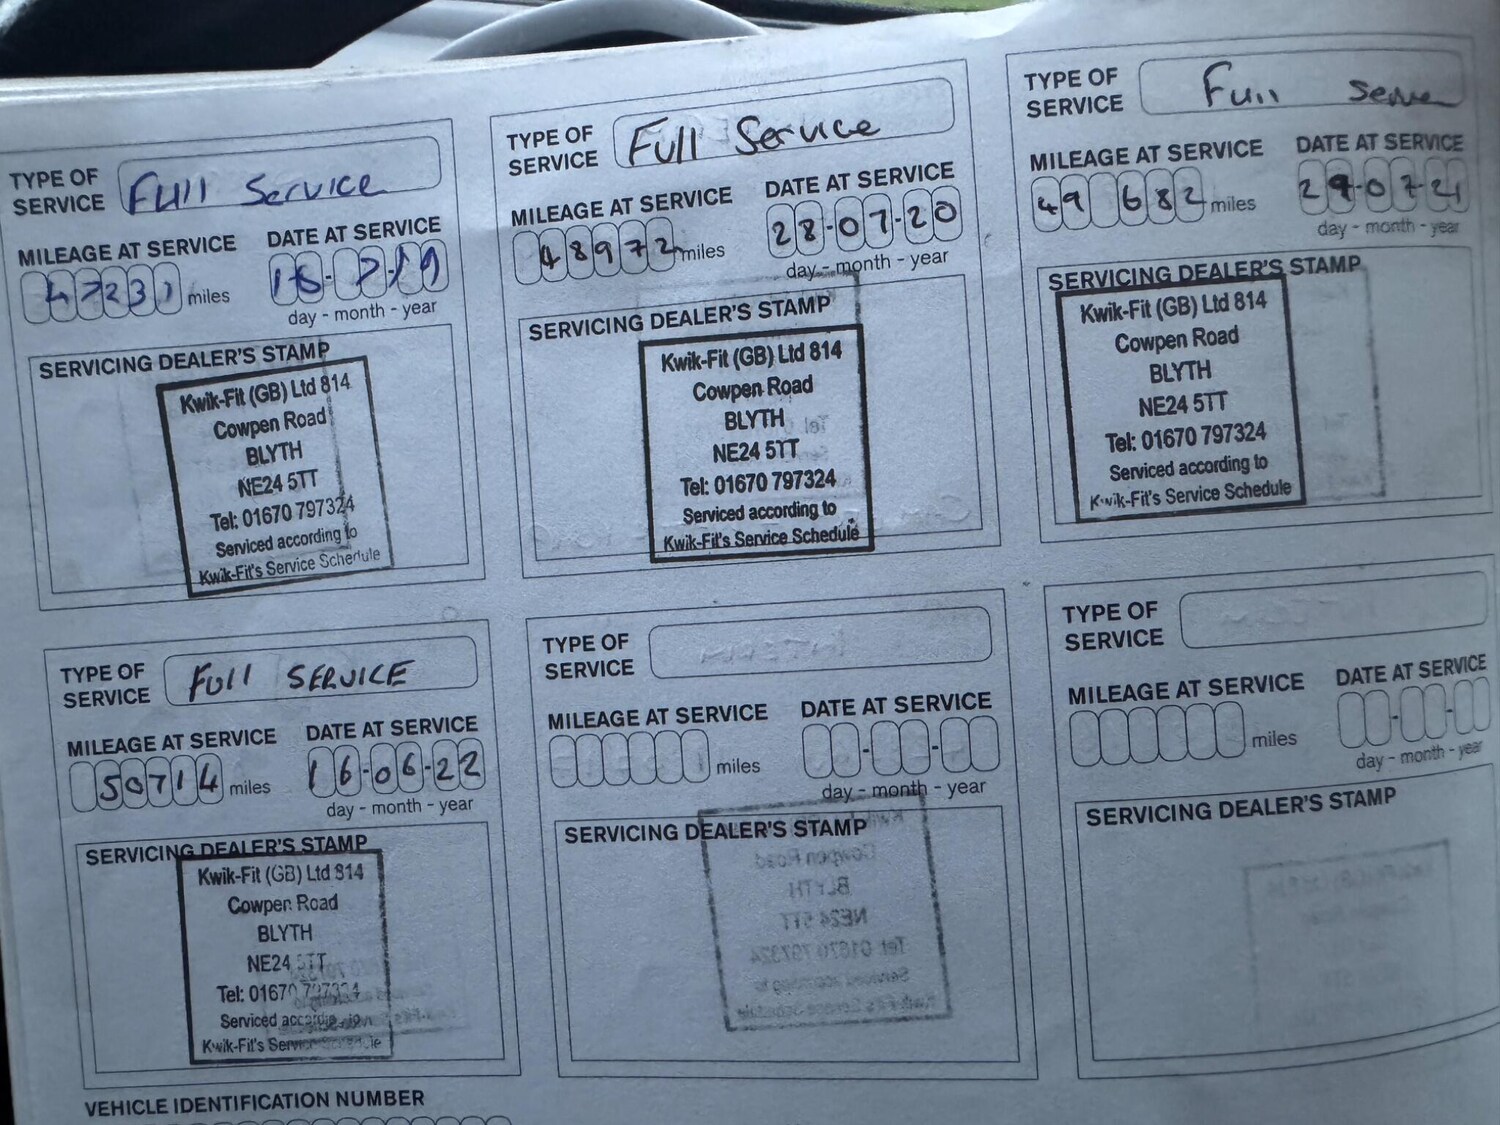 TYPE OF SERVICE Full Service
MILEAGE AT SERVICE
47231 miles
DATE AT SERVICE
day - month - year
SERVICING DEALER'S STAMP
Kwik-Fit (GB) Ltd 814
Cowpen Road
BLYTH
NE24 5TT
Tel: 01670 797324
Serviced according to
Kwik-Fit's Service Schedule
TYPE OF SERVICE Full Service
MILEAGE AT SERVICE
48972 miles
DATE AT SERVICE
28-07-20
day - month - year
SERVICING DEALER'S STAMP
Kwik-Fit (GB) Ltd 814
Cowpen Road
BLYTH
NE24 5TT
Tel: 01670 797324
Serviced according to
Kwik-Fit's Service Schedule
TYPE OF SERVICE Full
MILEAGE AT SERVICE
49 682 miles
DATE AT SERVICE
29-07-21
day - month - year
SERVICING DEALER'S STAMP
Kwik-Fit (GB) Ltd 814
Cowpen Road
BLYTH
NE24 5TT
Tel: 01670 797324
Serviced according to
Kwik-Fit's Service Schedule
TYPE OF SERVICE Full SERVICE
MILEAGE AT SERVICE
50714 miles
DATE AT SERVICE
16-06-22
day - month - year
SERVICING DEALER'S STAMP
Kwik-Fit (GB) Ltd 814
Cowpen Road
BLYTH
NE24 5TT
Tel: 01670 797324
Serviced according
Kwik-Fit's Service Schedule
TYPE OF SERVICE
MILEAGE AT SERVICE
miles
DATE AT SERVICE
day - month - year
SERVICING DEALER'S STAMP
TYPE OF SERVICE
MILEAGE AT SERVICE
miles
DATE AT SERVICE
day - month - year
SERVICING DEALER'S STAMP
VEHICLE IDENTIFICATION NUMBER